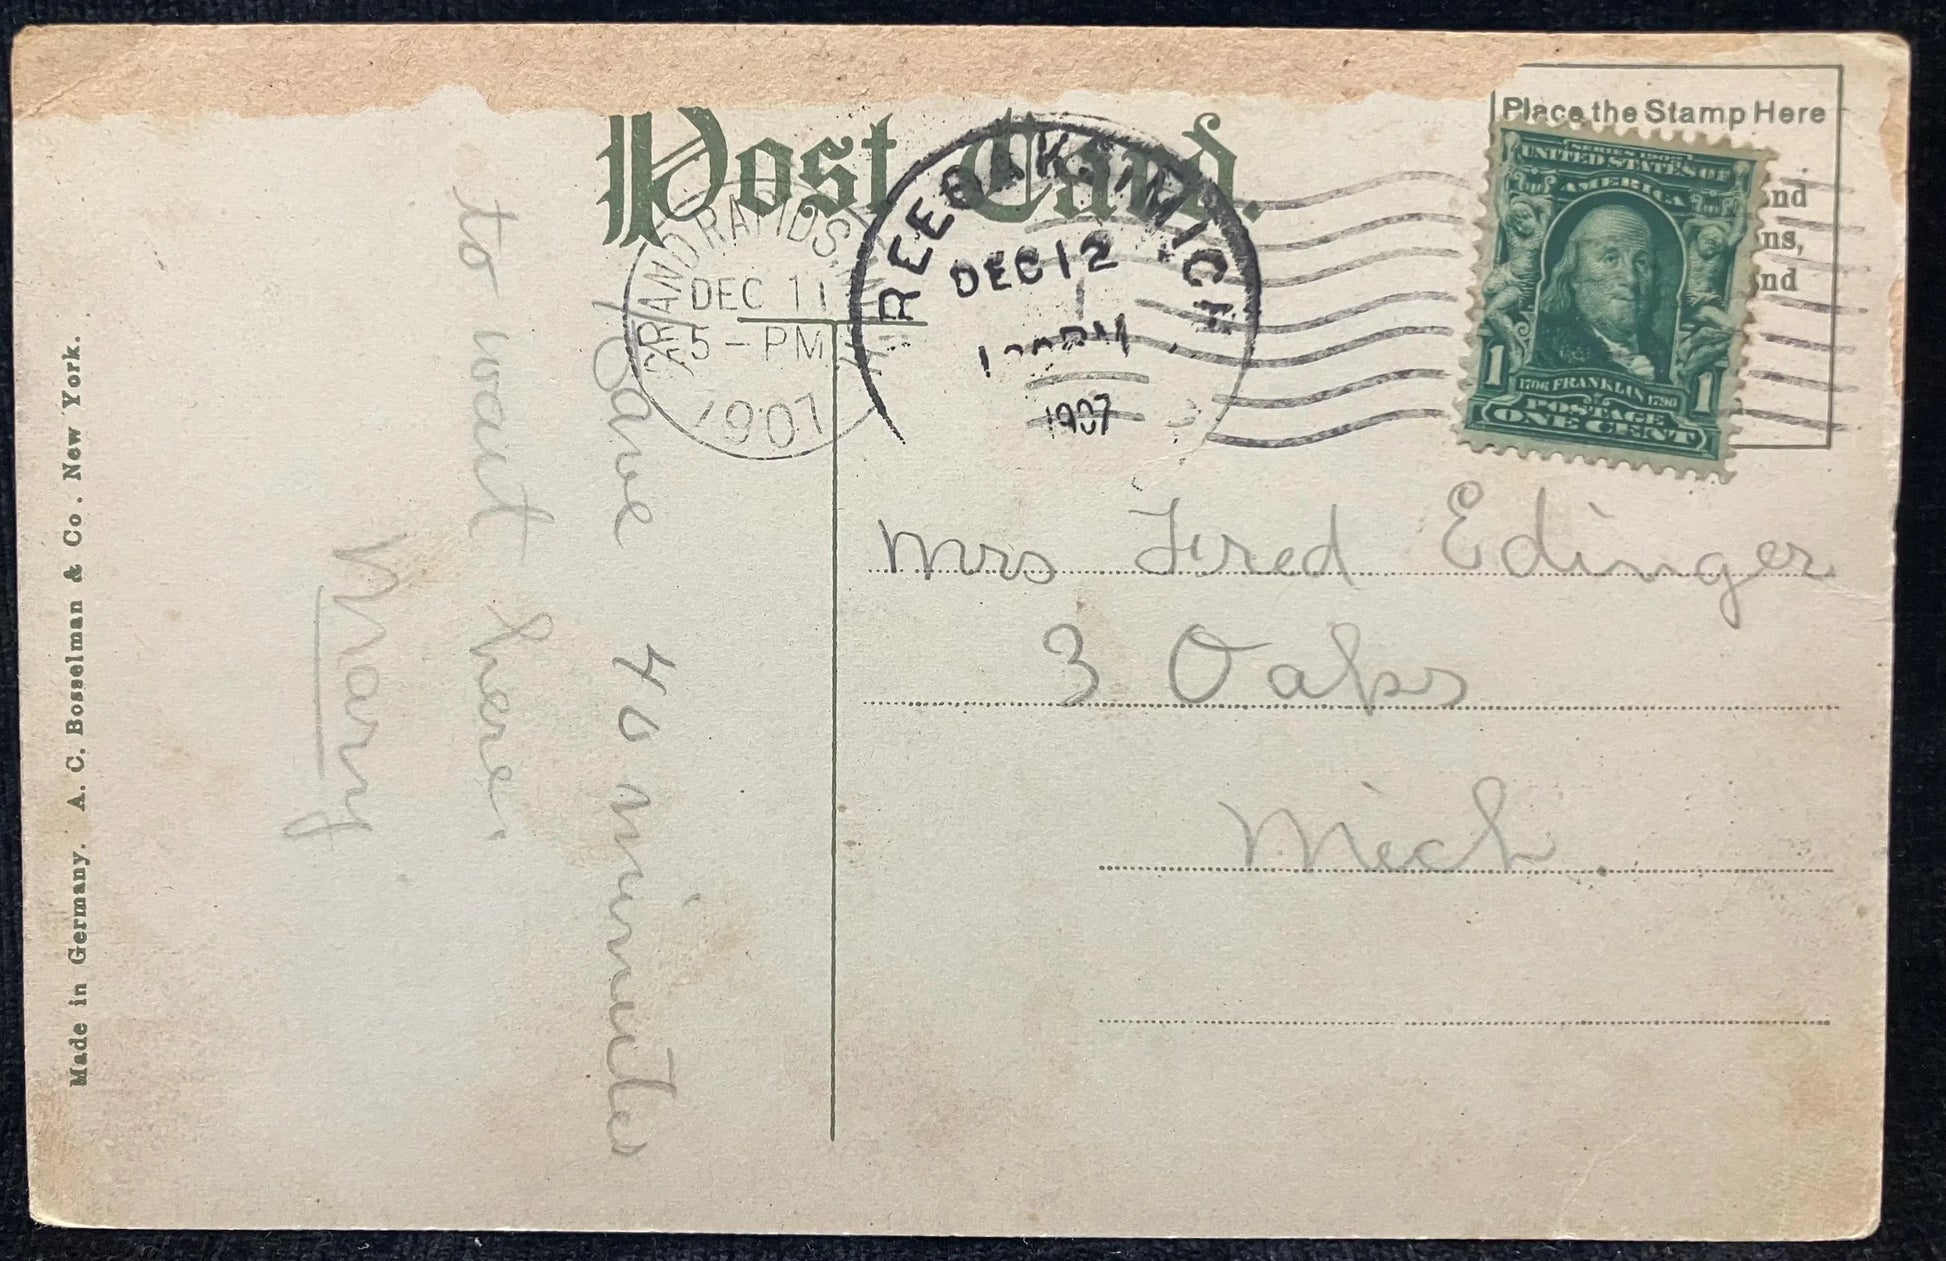 Post Card.
Place the Stamp Here
nd
ns,
nd
SERIES 1902
UNITED STATES OF
AMERICA
1 1
1706 FRANKLIN 1790
POSTAGE
ONE CENT
GRAND RAPIDS, MICH.
DEC 11
5 – PM
1907
REE OAKS, MICH
DEC 12
PM
1907
Have 40 minutes
to wait here.
Mary
Mrs Fred Edinger
3 Oaks
Mich.
Made in Germany. A. C. Bosselman & Co. New York.